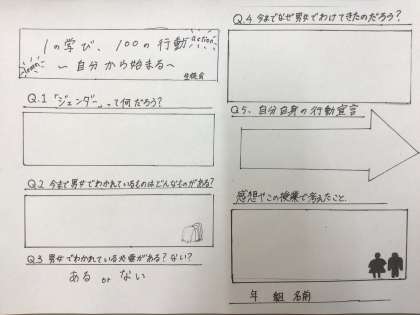 1の学び、100の行動
action
learn
～自分から始まる～
生徒会
Q.1 「ジェンダー」って何だろう?
Q.2 今まで男女でわかれているものはどんなものがある?
Q.3 男女でわかれている必要がある?ない?
ある or ない
Q.4 今までなぜ男女でわけてきたのだろう?
Q5、自分自身の行動宣言
感想やこの授業で考えたこと
年 組 名前